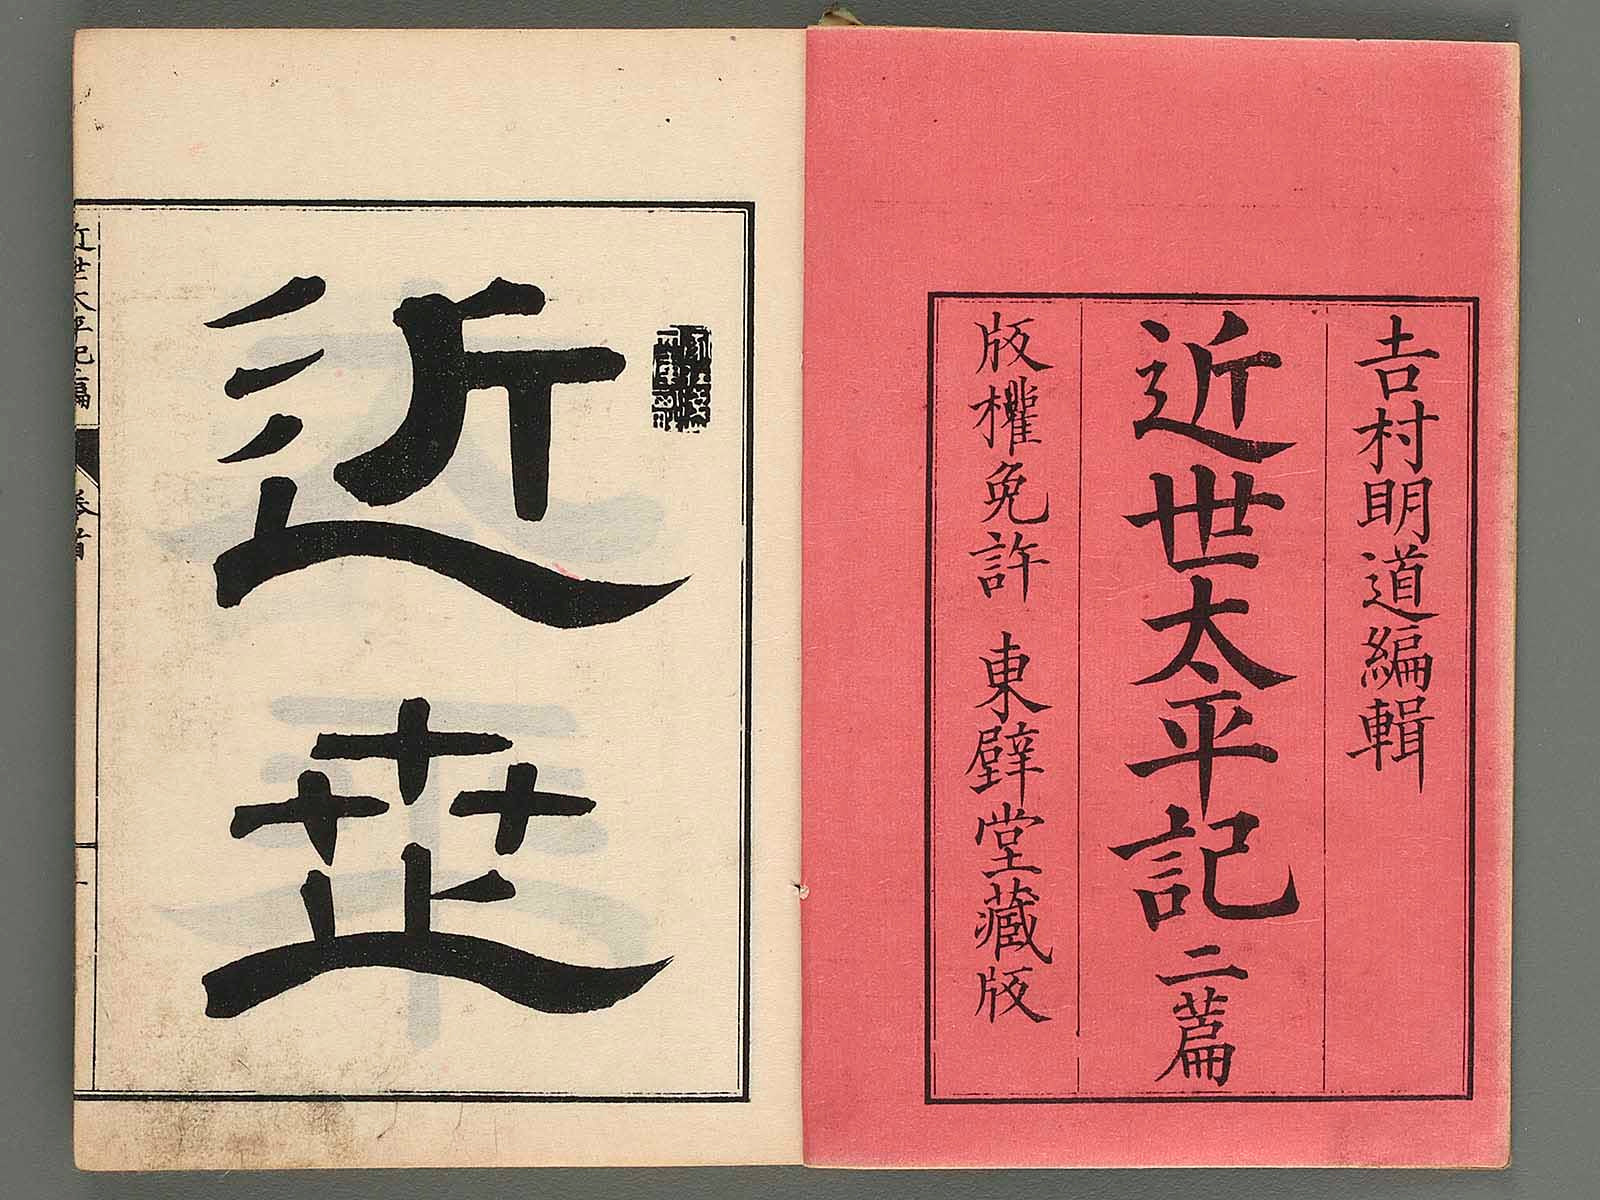 吉村明道編輯
近世太平記二篇
版權免許 東壁堂藏版
近世
近世太平記二編
卷首
一